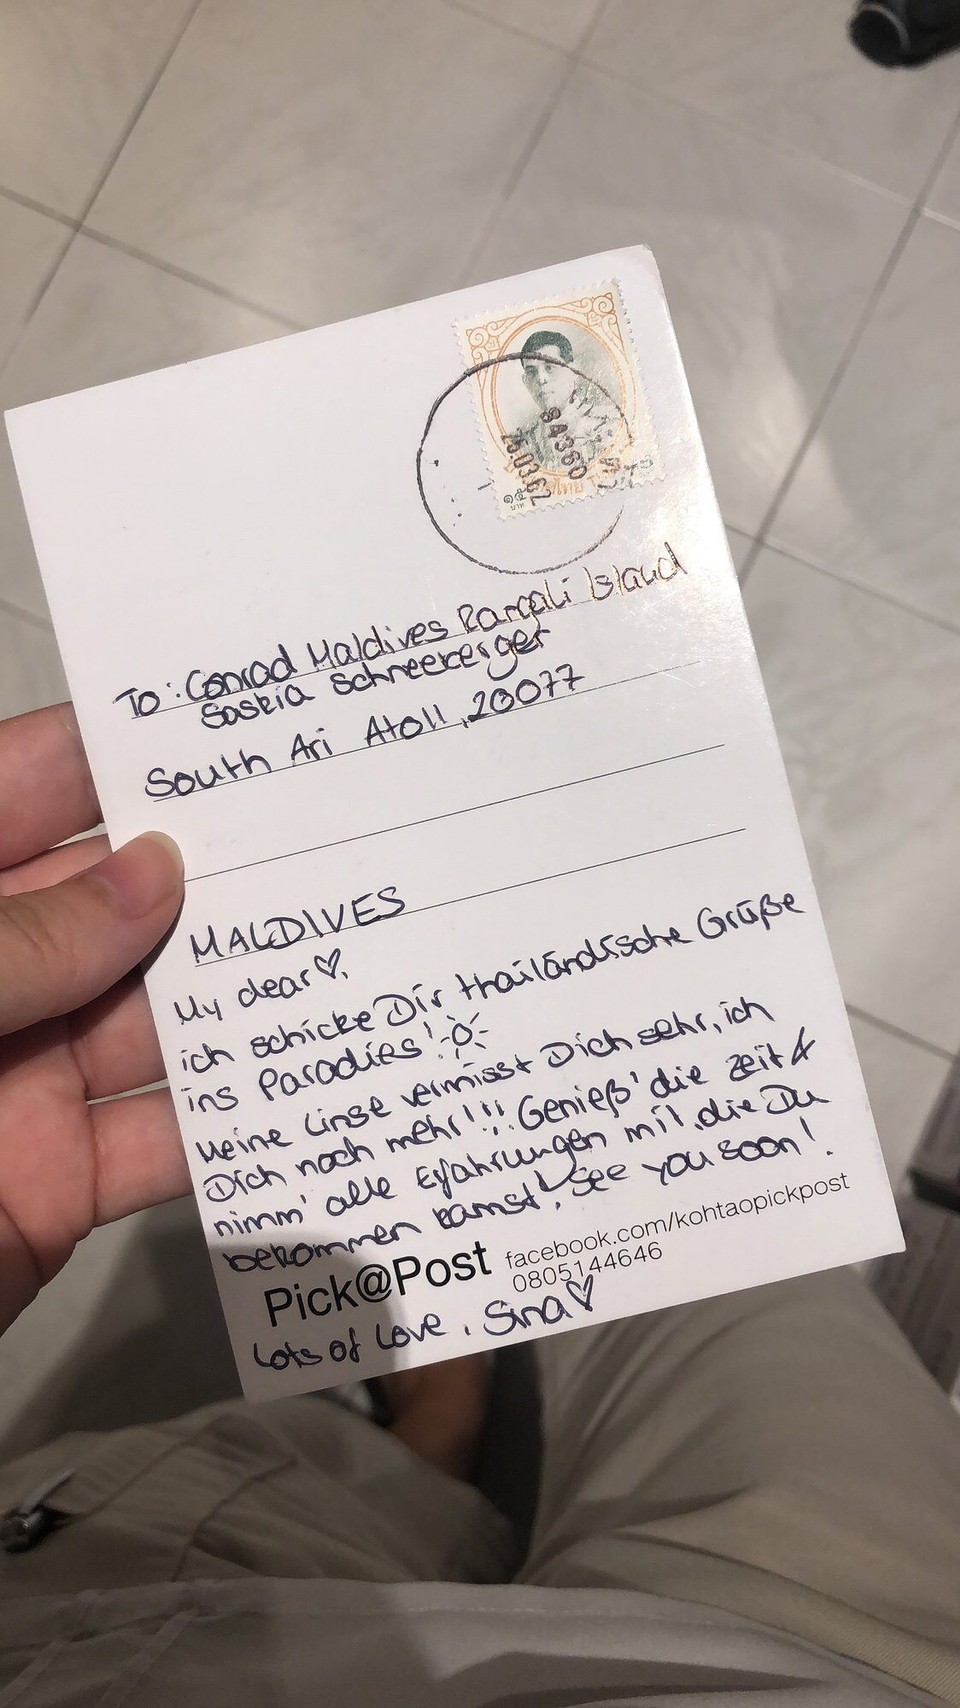 84360
25.03.62
To: Conrad Maldives Rangali Island
Saskia Schneeberger
South Ari Atoll, 20077
MALDIVES
My dear♡,
ich schicke Dir thailändische Grüße
ins Paradies!
Meine Linse vermisst Dich sehr, ich
Dich noch mehr!!! Genieß' die Zeit &
nimm' alle Erfahrungen mit, die Du
bekommen kannst! See you soon!
Pick@Post facebook.com/kohtaopickpost
0805144646
Lots of Love, Sina♡